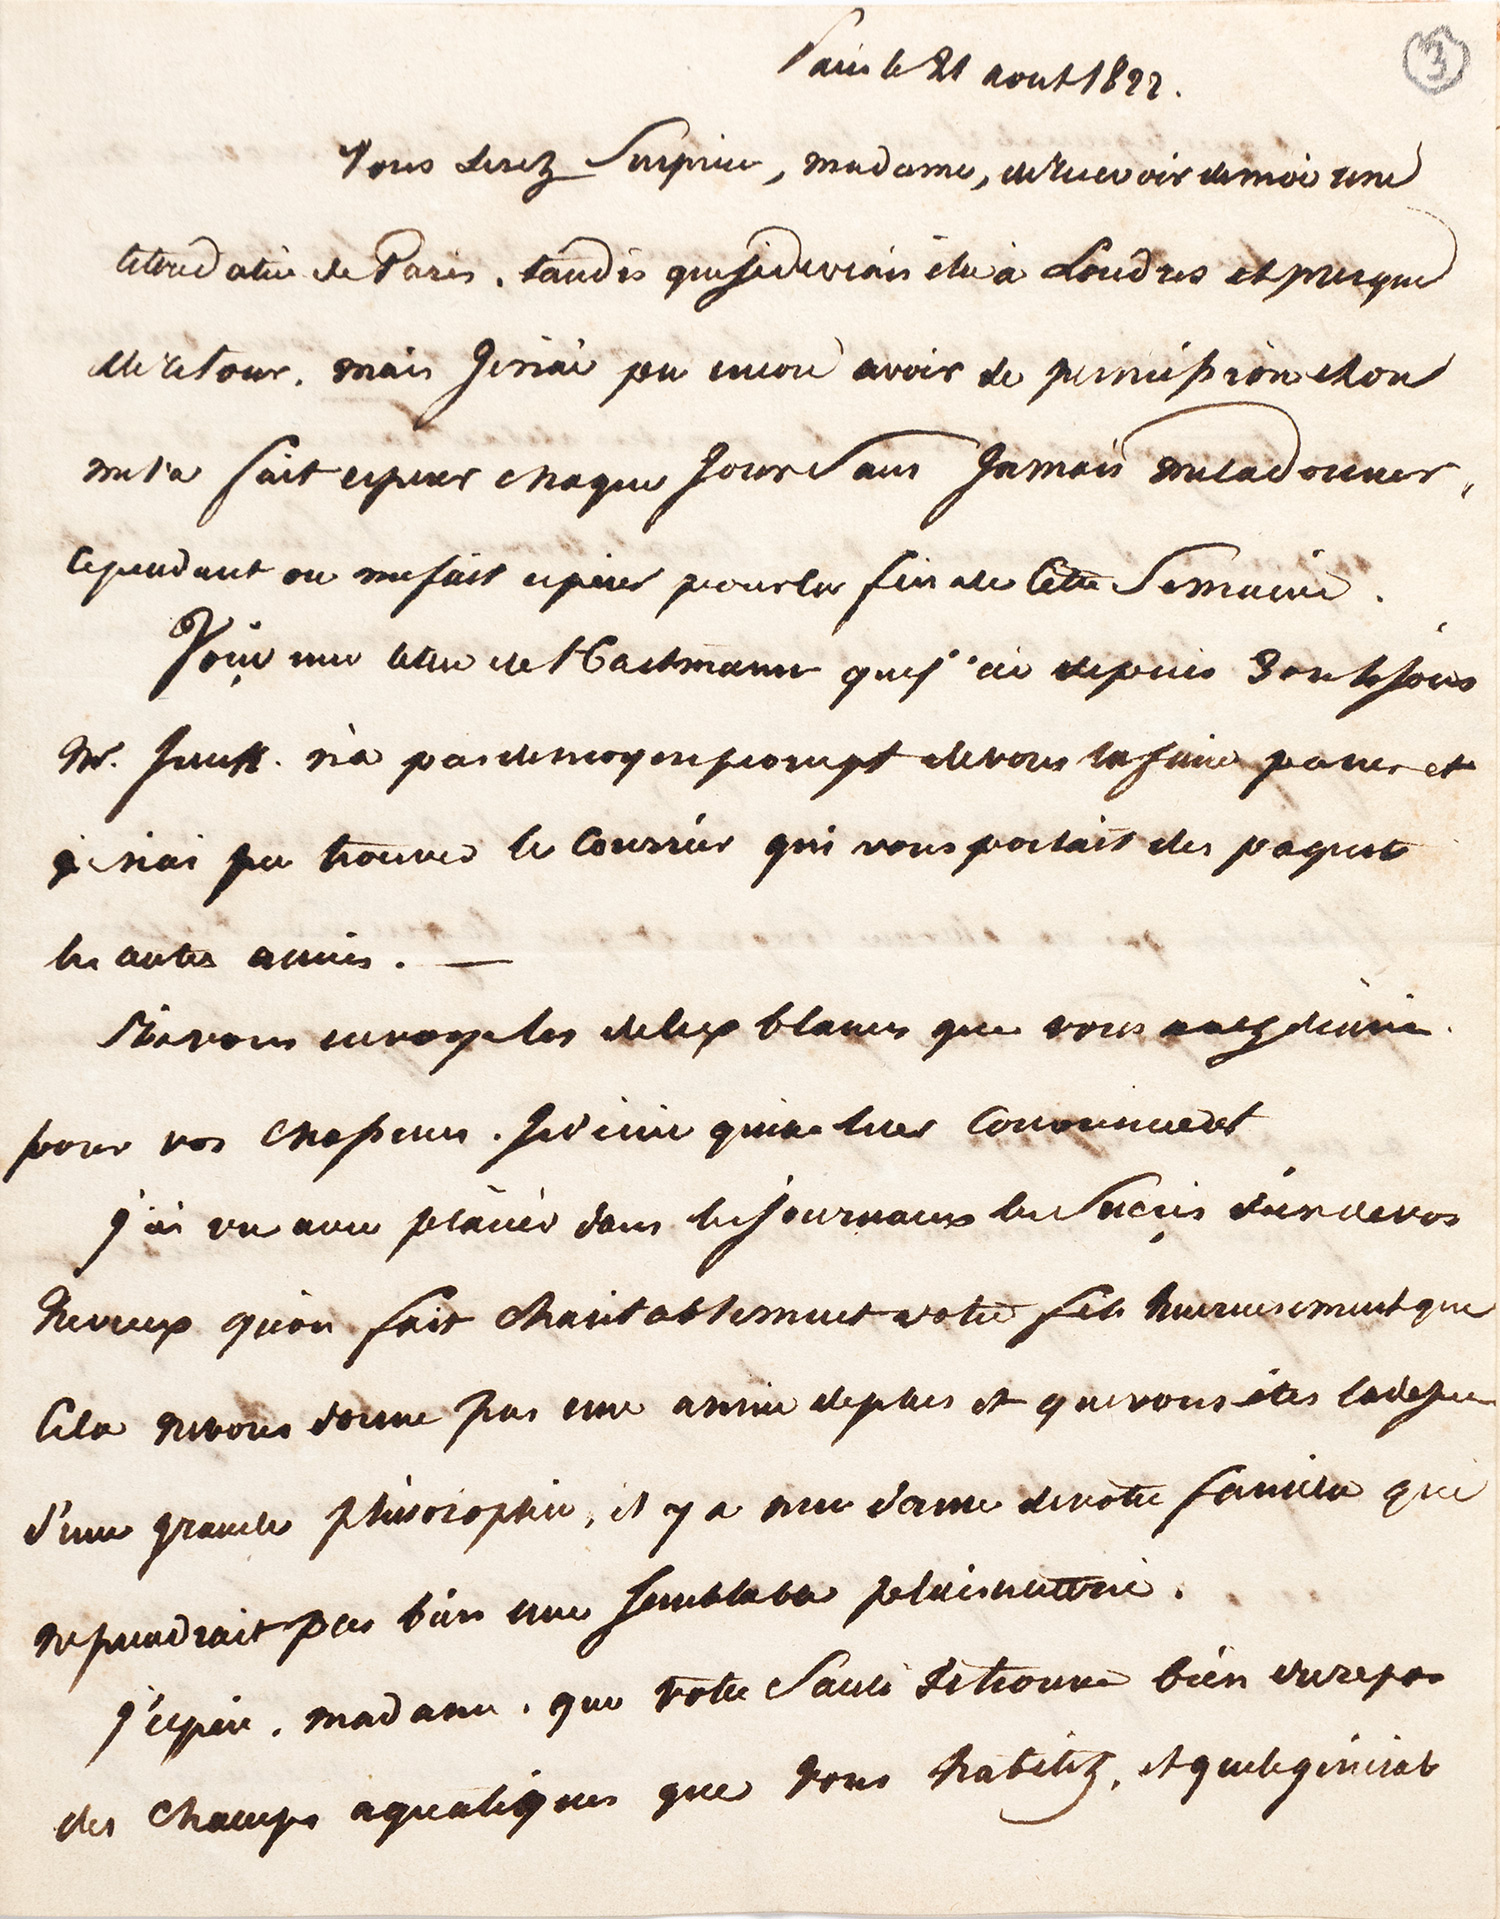 3
Paris le 21 aout 1822.
Vous serez surprise, madame, de recevoir de moi une
lettre datée de Paris, tandis que je devrais être à Londres et presque
de retour. mais Je n'ai pu encore avoir de permission et on
me l'a fait esperer chaque Jour sans Jamais me la donner,
Cependant on me fait esperer pour la fin de Cette Semaine.
Voiçi une lettre de Hartmann que j'ai depuis 3 ou 4 Jours
Mr. n'a pas de moyen prompt de vous la faire passer et
je n'ai pu trouver le Courrier qui vous portait des paquets
les autres années. —
Je vous envoye les blancs que vous avez désiré
pour vos chapeaux. Je désire qu'ils vous Conviennent
j'ai vu avec plaisir dans les Journaux le Sucçès d'un de vos
Neveux qu'on fait charitablement votre fils heureusement que
Cela ne vous donne pas une année de plus et que vous êtes
d'une grande philosophie, il y a une dame de votre famille qui
ne prendrait pas bien une semblable plaisanterie.
j'espère, madame, que votre Santé se trouve bien du repos
des Champs aquatiques que vous habitez, et que le général